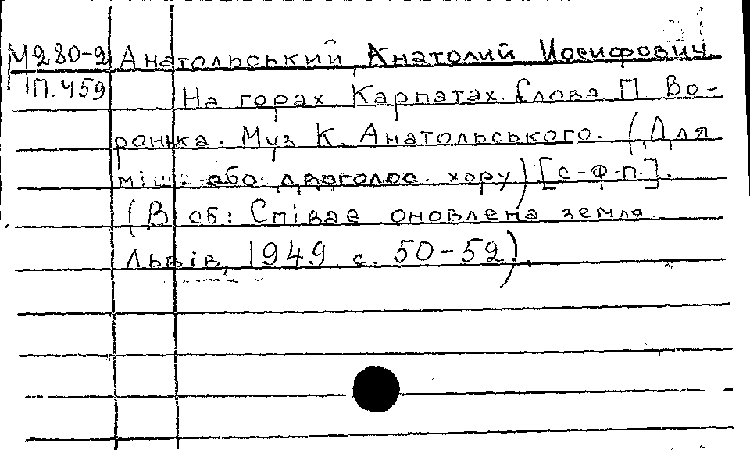 М280-2 Анатольський, Анатолий Иосифович
П.459 На горах Карпатах. Слова П Во-
ронька. Муз К. Анатольського. (Для
міш. або двоголос. хору) [с-ф-п.].
(В сб: Співає оновлена земля
Львів, 1949 с. 50-52).